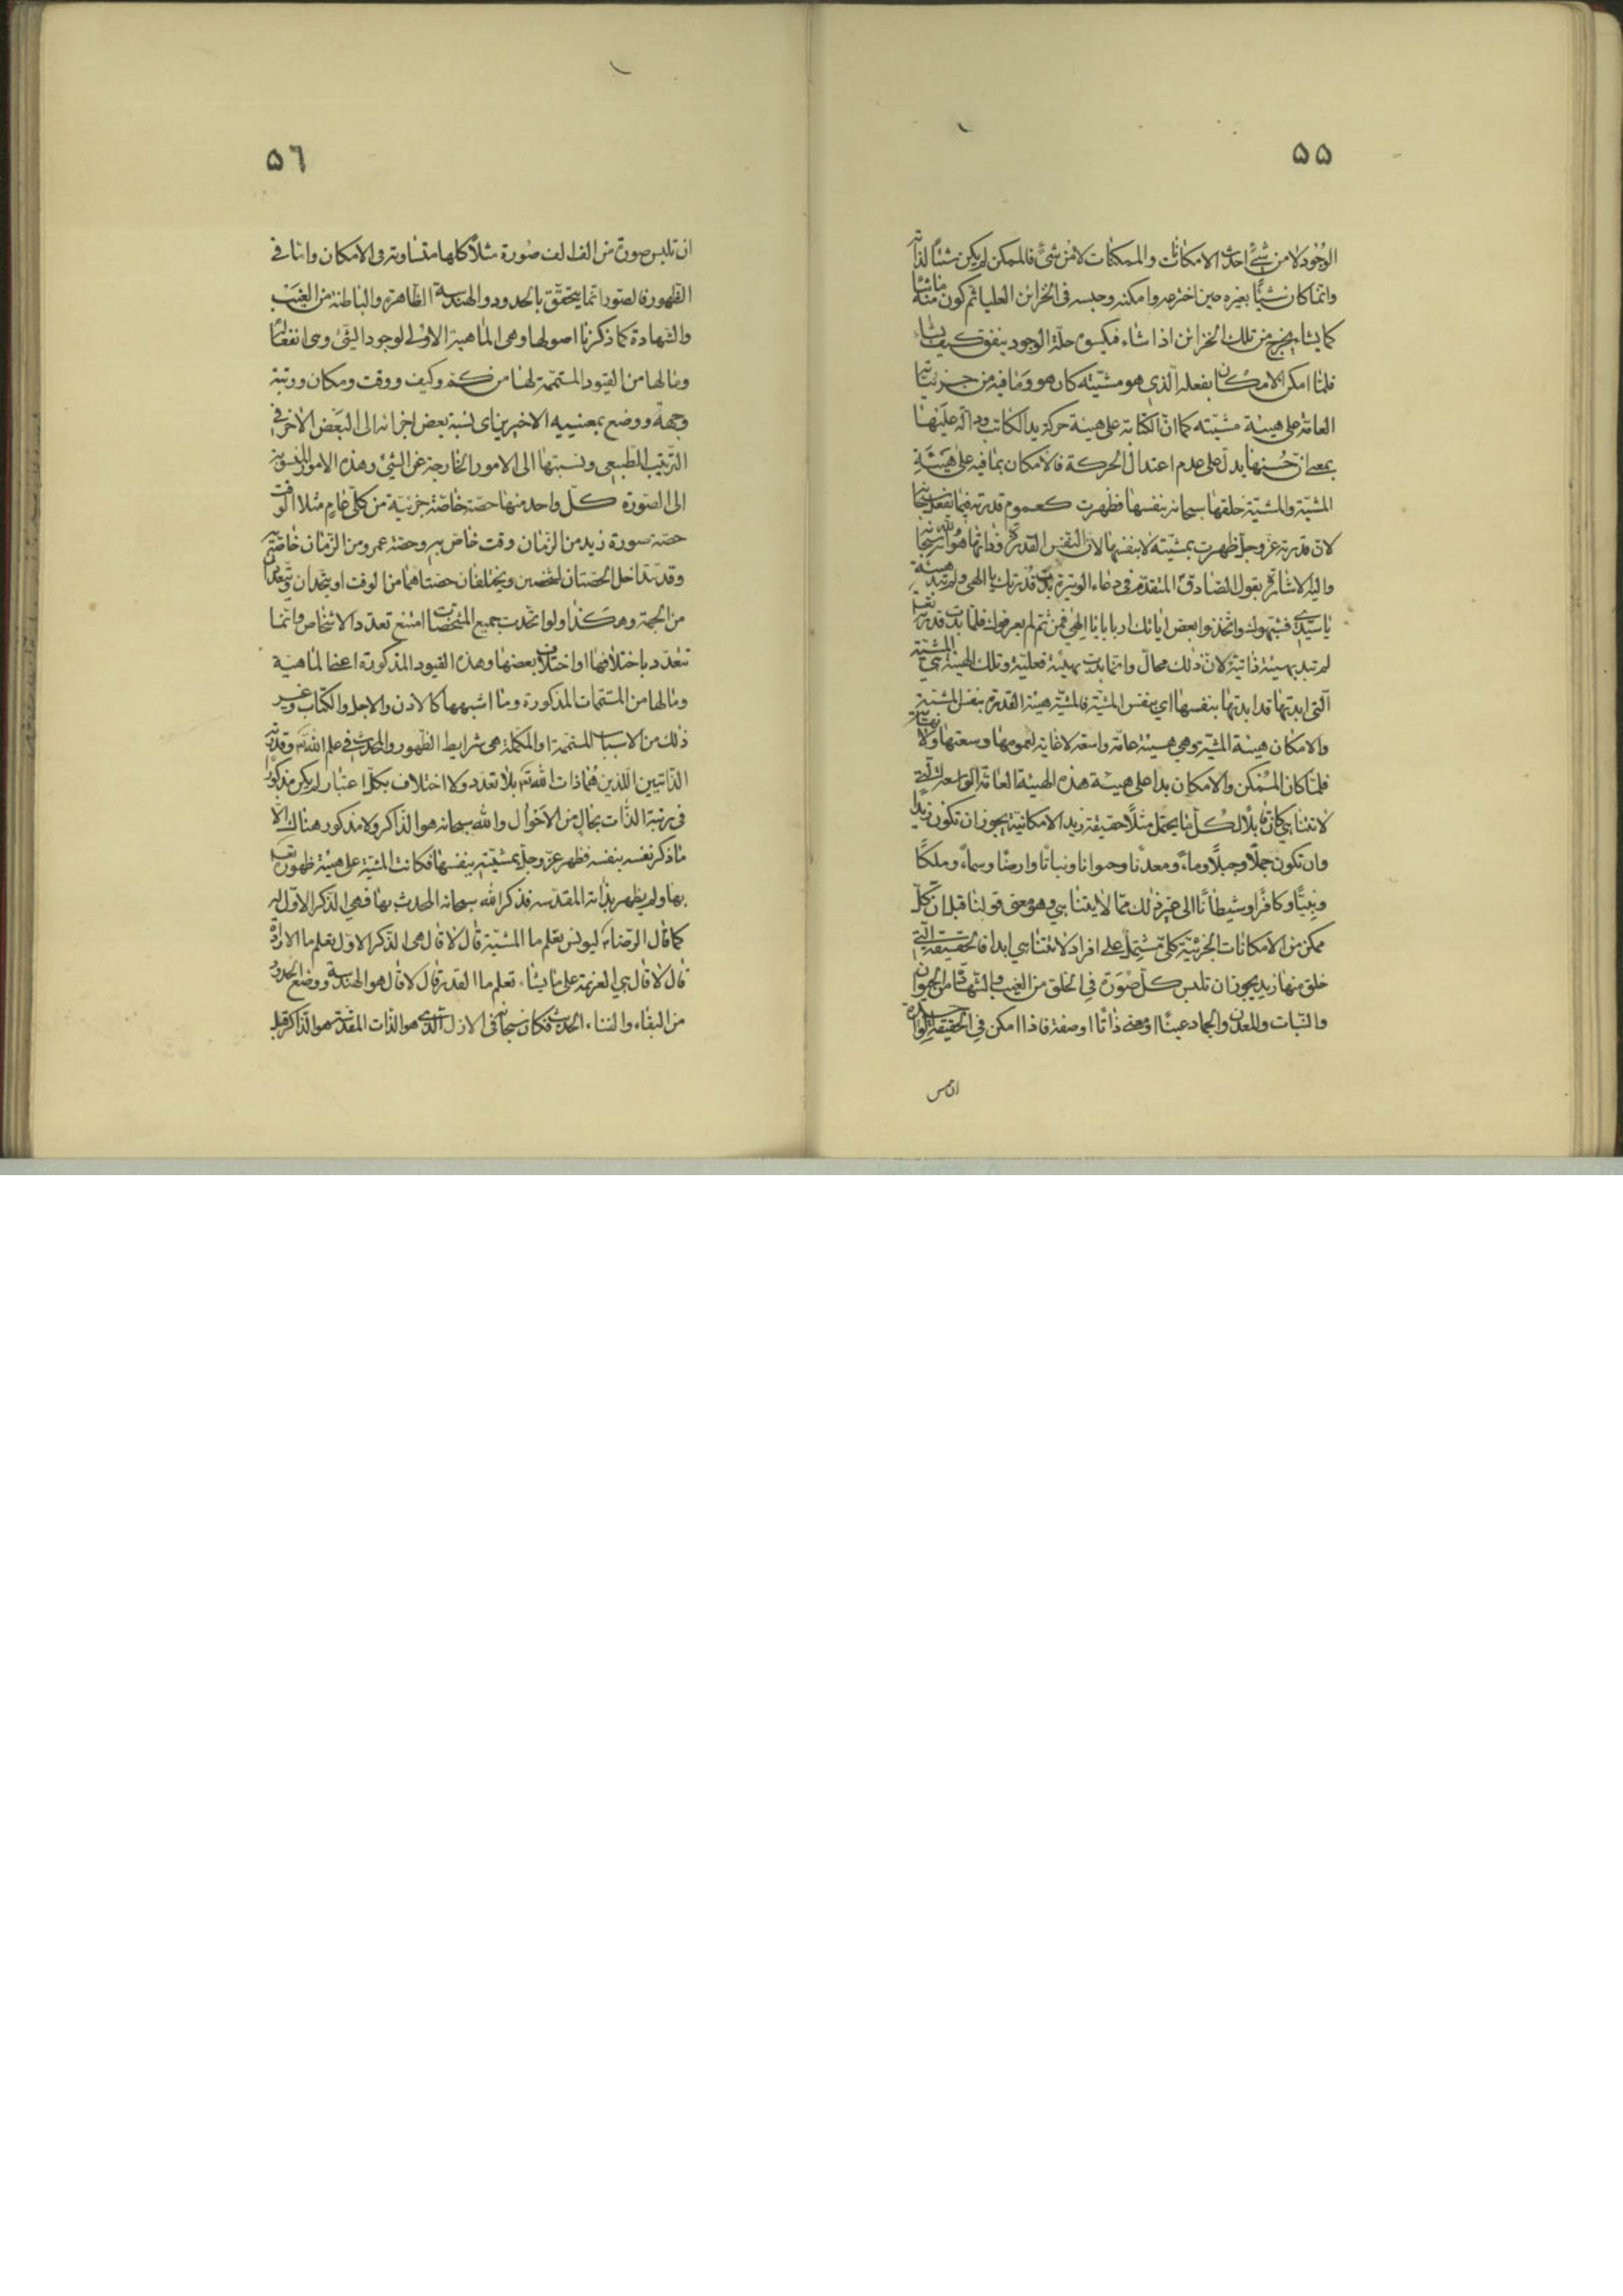 ٥٥
الوجود لا من شئ احدث الامكانات والممكنات لا من شئ فالممكن لم يكن شيئا لذاته
وانما كان شيئا بغيره حين اخترعه وامكنه وحبسه فى الخزائن العليا ثم كون منه ما شاء
كما يشاء يخرج من تلك الخزائن اذا شاء فيكسوه حلة الوجود ينفق كيف يشاء
فلما امكن الامكان بفعله الذى هو مشيته كان هو وما فيه من جزئياته
العامة على هيئة مشيته كما ان الكتابة على هيئة حركة يد الكاتب ودالة عليها
بمعنى ان حسنها يدل على عدم اعتدال الحركة فالامكان بما فيه على هيئة
المشية والمشية خلقها سبحانه بنفسها فظهرت كعموم قدرته فيما يفعل سبحانه
لان قدرته عز وجل ظهرت بمشيته لا بنفسها لان النفس القدرة وذاتها هو الله سبحانه
واليه الاشارة بقول الصادق المتقدم فى دعاء الوتيرة بدت قدرتك يا الهى ولم تبد هيئة
يا سيدى فشبهوك واتخذوا بعض اياتك اربابا يا الهى فمن ثم لم يعرفوك فلما بدت قدرته تعالى
لم تبد بهيئة ذاتية لان ذلك محال وانما بدت بهيئة فعلية وتلك الهيئة هى المشية
التى ابدتها قد ابدتها بنفسها اى بنفس المشية فالمشية هيئة القدرة بنفس المشية
والامكان هيئة المشية وهى هيئة عامة واسعة لا غاية لعمومها وسعتها ولا نهاية
فلما كان الممكن والامكان بدا على هيئة هذه الهيئة العامة الواسعة التى
لا تتناهى كان قابلا لكل ما يحتمل مثلا حقيقة زيد الامكانية يجوز ان تكون زيدا
وان تكون جملا وجبلا وماء ومعدنا وحيوانا ونباتا وارضا وسماء وملكا
ونبيا وكافرا وشيطانا الى غير ذلك مما لا يتناهى وهو معنى قولنا قبل ان كل
ممكن من الامكانات الجزئية كلى تشتمل على افراد لا تتناهى ابدا فالحقيقة التى
خلق منها زيد يجوز ان تلبس كل صورة فى الخلق من الغيب والشهادة من الحيوان
والنبات والمعدن والجماد عينا او معنى ذاتا او صفة فاذا امكن فى الحقيقة
ان تلبس
٥٦
ان تلبس صورة من الف الف صورة مثلا كلها متساوية فى الامكان واما فى
الظهور فالصور انما يتحقق بالحدود والهندسة الظاهرة والباطنة من الغيب
والشهادة كما ذكرنا اصولها وهى الماهية الاولى لوجود الشئ وهى انفعاله
وما لها من القيود المتممة لها من كم وكيف ووقت ومكان ورتبة
وجهة ووضع بمعنييه الاخيرين اى نسبة بعض اجزائه الى البعض الاخر فى
الترتيب الطبيعى ونسبتها الى الامور الخارجة عن الشئ وهذه الامور المنسوبة
الى الصورة كل واحد منها حصة خاصة جزئية من كلى عام مثلا الوقت
حصة صورة زيد من الزمان وقت خاص به وحصة عمرو من الزمان خاصة به
وقد تتداخل الحصتان لشخصين ويختلفان حصتاهما من الوقت او يتحدان ويتعددان
من الجهة وهكذا ولو اتحدت جميع المشخصات امتنع تعدد الاشخاص وانما
تتعدد باختلافها او اختلاف بعضها وهذه القيود المذكورة اعنى الماهية
وما لها من المتممات المذكورة وما اشبهها كالاذن والاجل والكتاب وغير
ذلك من الاسباب المتممة او المكملة هى شرايط الظهور والمحدث فى علم الله وقدرته
الذاتيين اللذين هما ذات الله تعالى بلا تعدد ولا اختلاف بكل اعتبار لم يكن مذكورا
فى رتبة الذات بحال من الاحوال والله سبحانه هو الذاكر ولا مذكور هناك الا
ما ذكر نفسه بنفسه فظهر عز وجل بمشيته بنفسها فكانت المشية على هيئة ظهوره تعالى
بها ولم يظهر بذاته المقدسة فذكر الله سبحانه المحدث بها فهى الذكر الاول له
كما قال الرضاء ليونس تعلم ما المشية قال لا قال هى الذكر الاول تعلم ما الارادة
قال لا قال هى العزيمة على ما يشاء تعلم ما القدر قال لا قال هو الهندسة ووضع الحدود
من البقاء والفناء الحديث فكان سبحانه فى الازل الذى هو الذات المقدسة هو الذاكر قبل